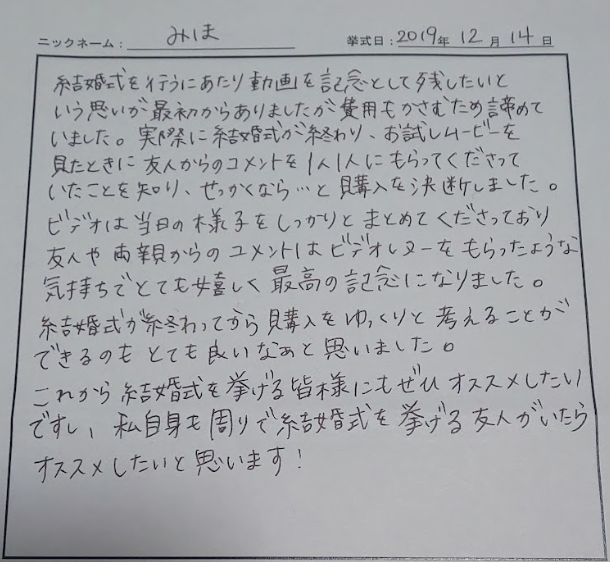 ニックネーム： みほ 挙式日：2019年 12月 14日
結婚式を行うにあたり動画を記念として残したいと
いう思いが最初からありましたが費用もかさむため諦めて
いました。実際に結婚式が終わり、お試しムービーを
見たときに友人からのコメントを1人1人にもらってくださって
いたことを知り、せっかくなら…と購入を決断しました。
ビデオは当日の様子をしっかりとまとめてくださっており
友人や両親からのコメントはビデオレターをもらったような
気持ちでとても嬉しく最高の記念になりました。
結婚式が終わってから購入をゆっくりと考えることが
できるのもとても良いなぁと思いました。
これから結婚式を挙げる皆様にもぜひオススメしたい
ですし、私自身も周りで結婚式を挙げる友人がいたら
オススメしたいと思います！